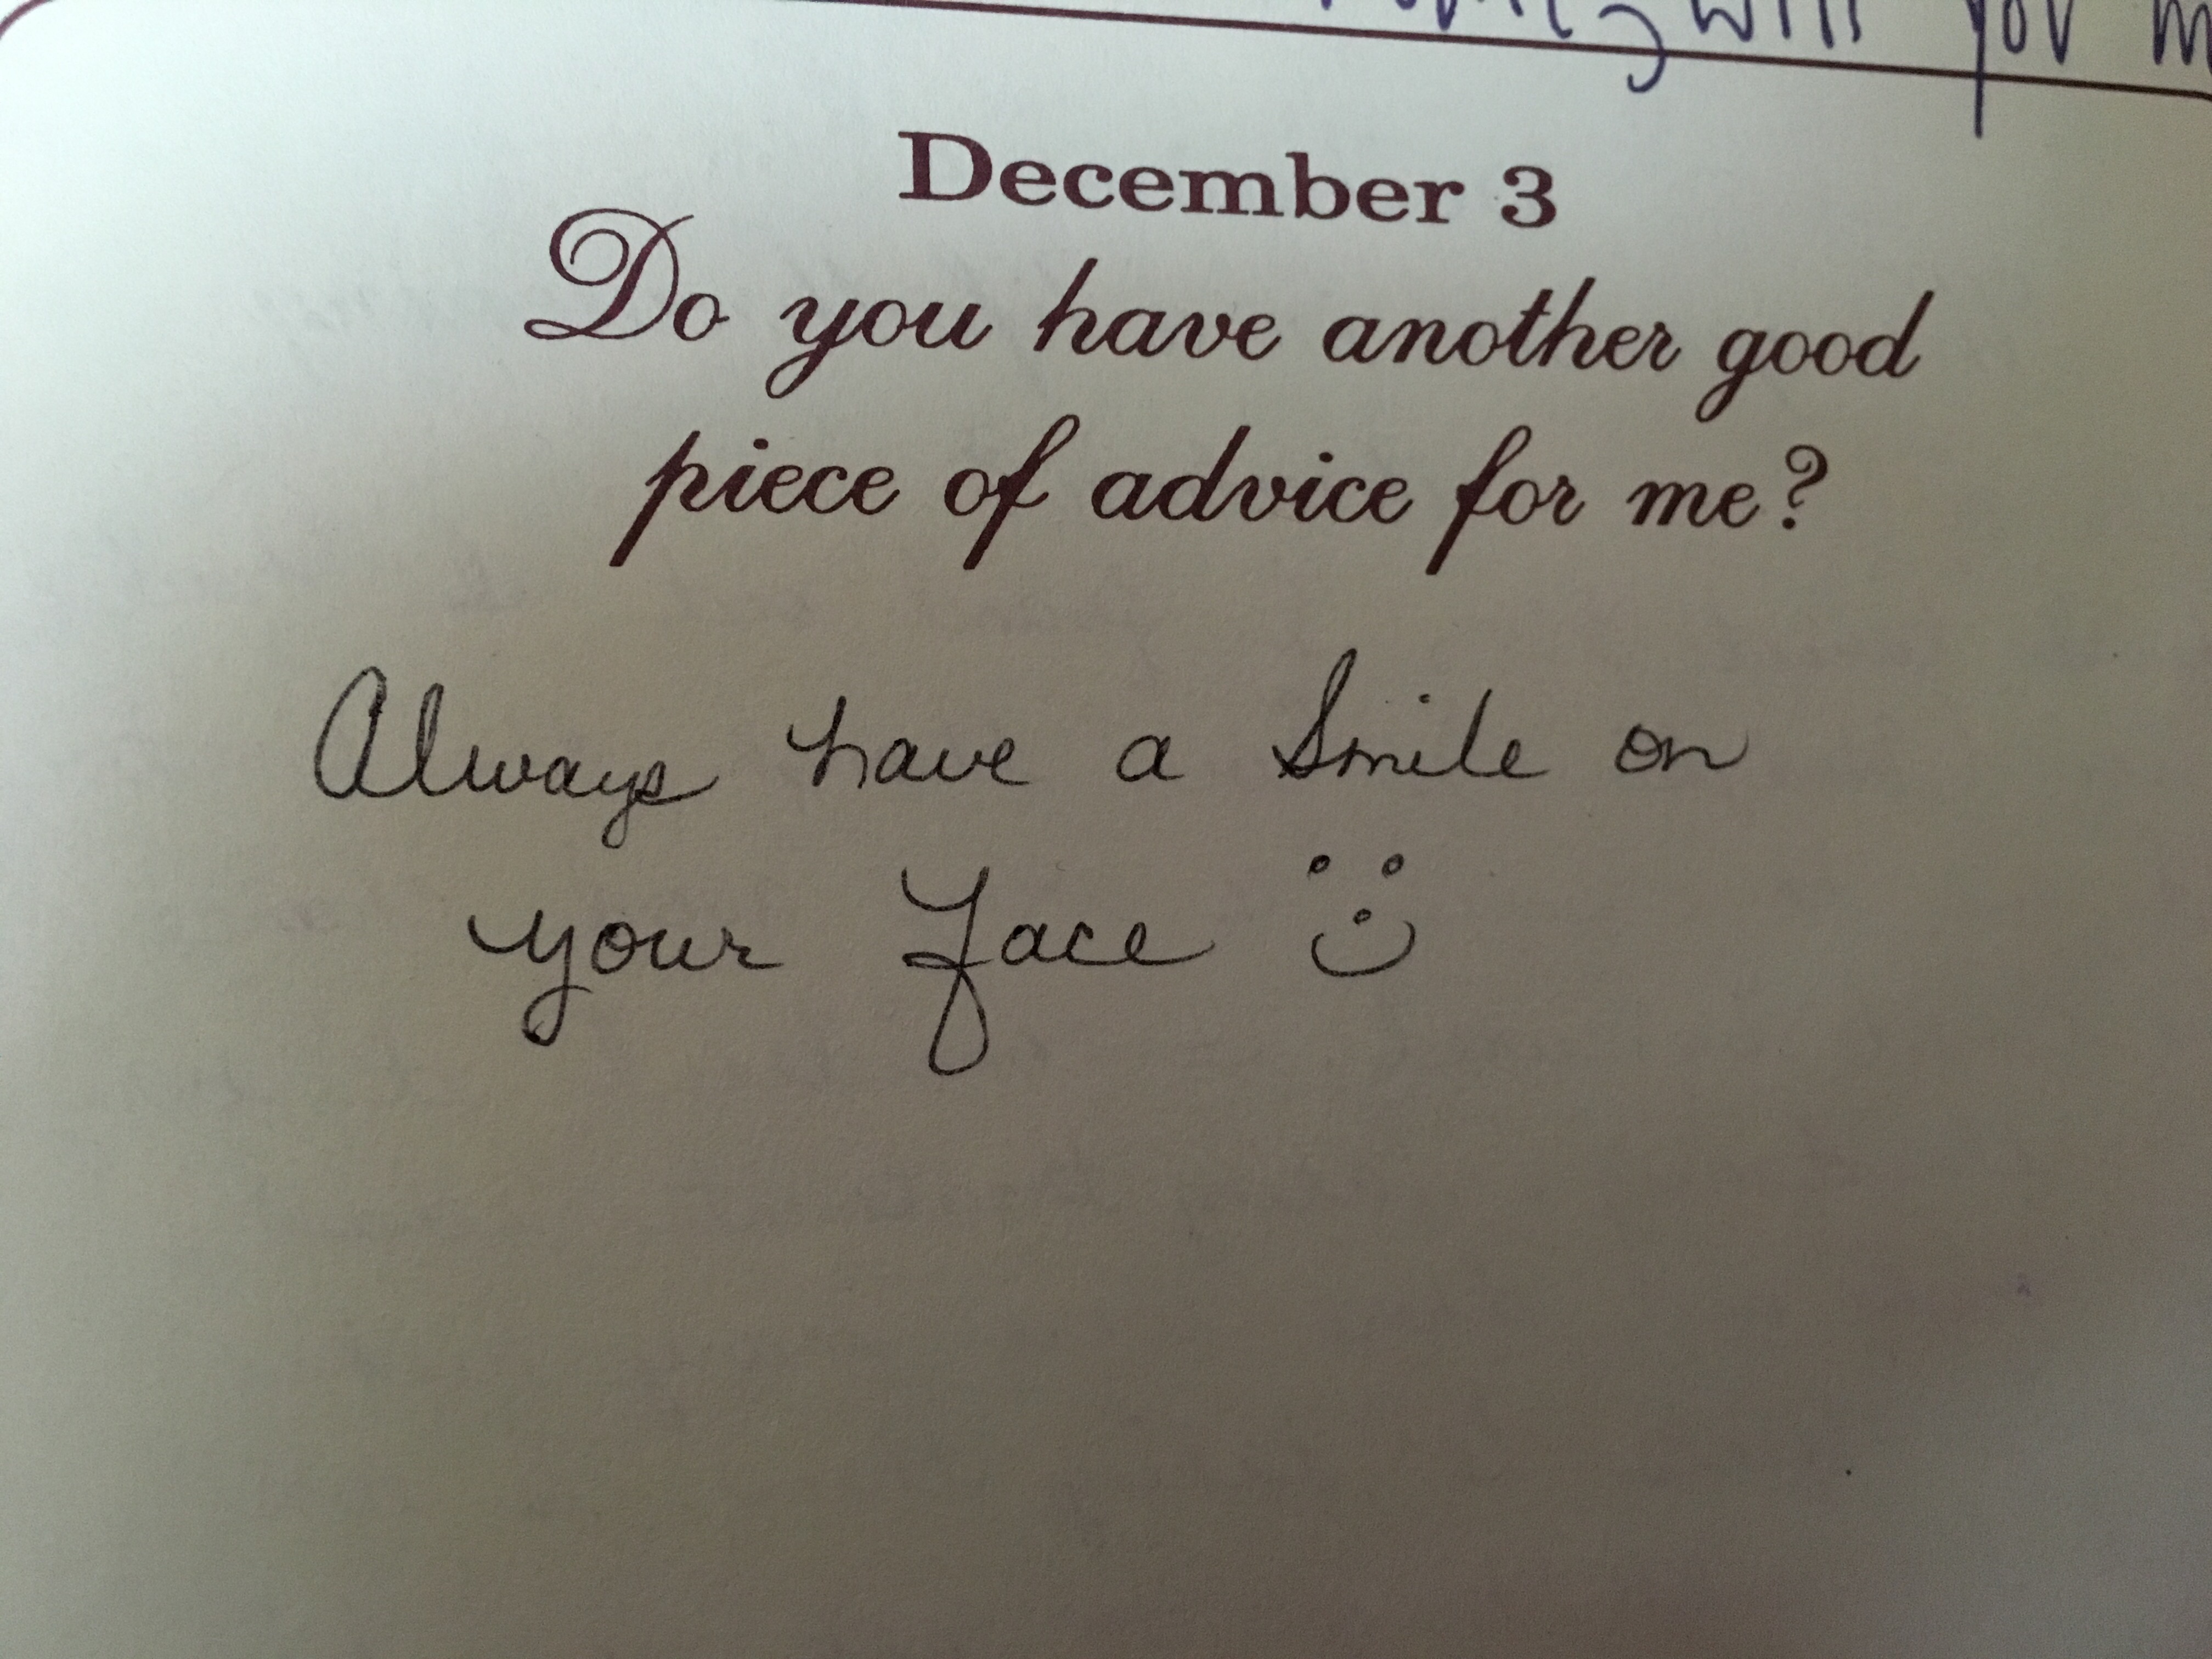 will you
December 3
Do you have another good
piece of advice for me?
Always have a Smile on
your face